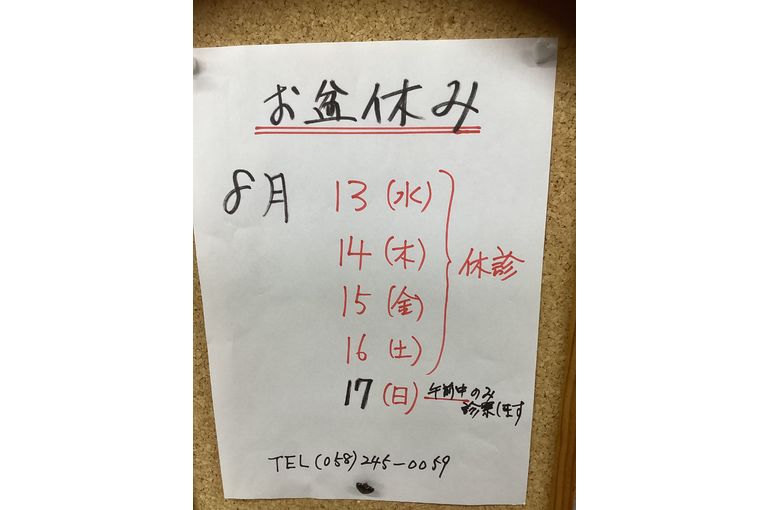 お盆休み
8月 13(水)
14(木)
15(金)
16(土)
休診
17(日) 午前中のみ
診察します
TEL(058)245-0059